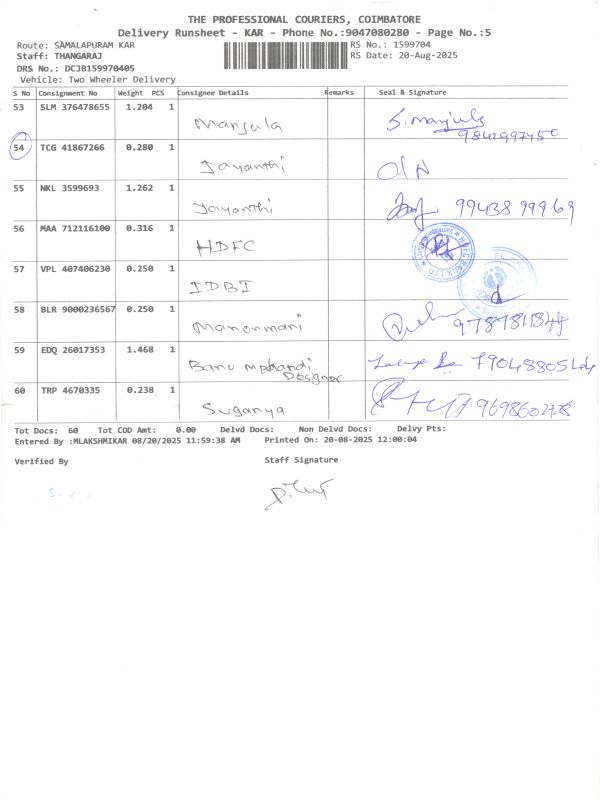 THE PROFESSIONAL COURIERS, COIMBATORE
Delivery Runsheet - KAR - Phone No.:9047080280 - Page No.:5
Route: SAMALAPURAM KAR RS No.: 1599704
Staff: THANGARAJ RS Date: 20-Aug-2025
DRS No.: DCJB159970405
Vehicle: Two Wheeler Delivery
S No Consignment No Weight PCS Consignee Details Remarks Seal & Signature
53 SLM 376478655 1.204 1
Manjula S. Manjula
9842997450
54 TCG 41867266 0.280 1
Jayanthi O/N
55 NKL 3599693 1.262 1
Jayanthi 99438 99969
56 MAA 712116100 0.316 1
HDFC
57 VPL 407406230 0.250 1
IDBI
58 BLR 9000236567 0.250 1
Manonmani
59 EDQ 26017353 1.468 1
Banu Mehandi
Designer
60 TRP 4670335 0.238 1
Suganya
Tot Docs: 60 Tot COD Amt: 0.00 Delvd Docs: Non Delvd Docs: Delvy Pts:
Entered By :MLAKSHMIKAR 08/20/2025 11:59:38 AM Printed On: 20-08-2025 12:00:04
Verified By Staff Signature